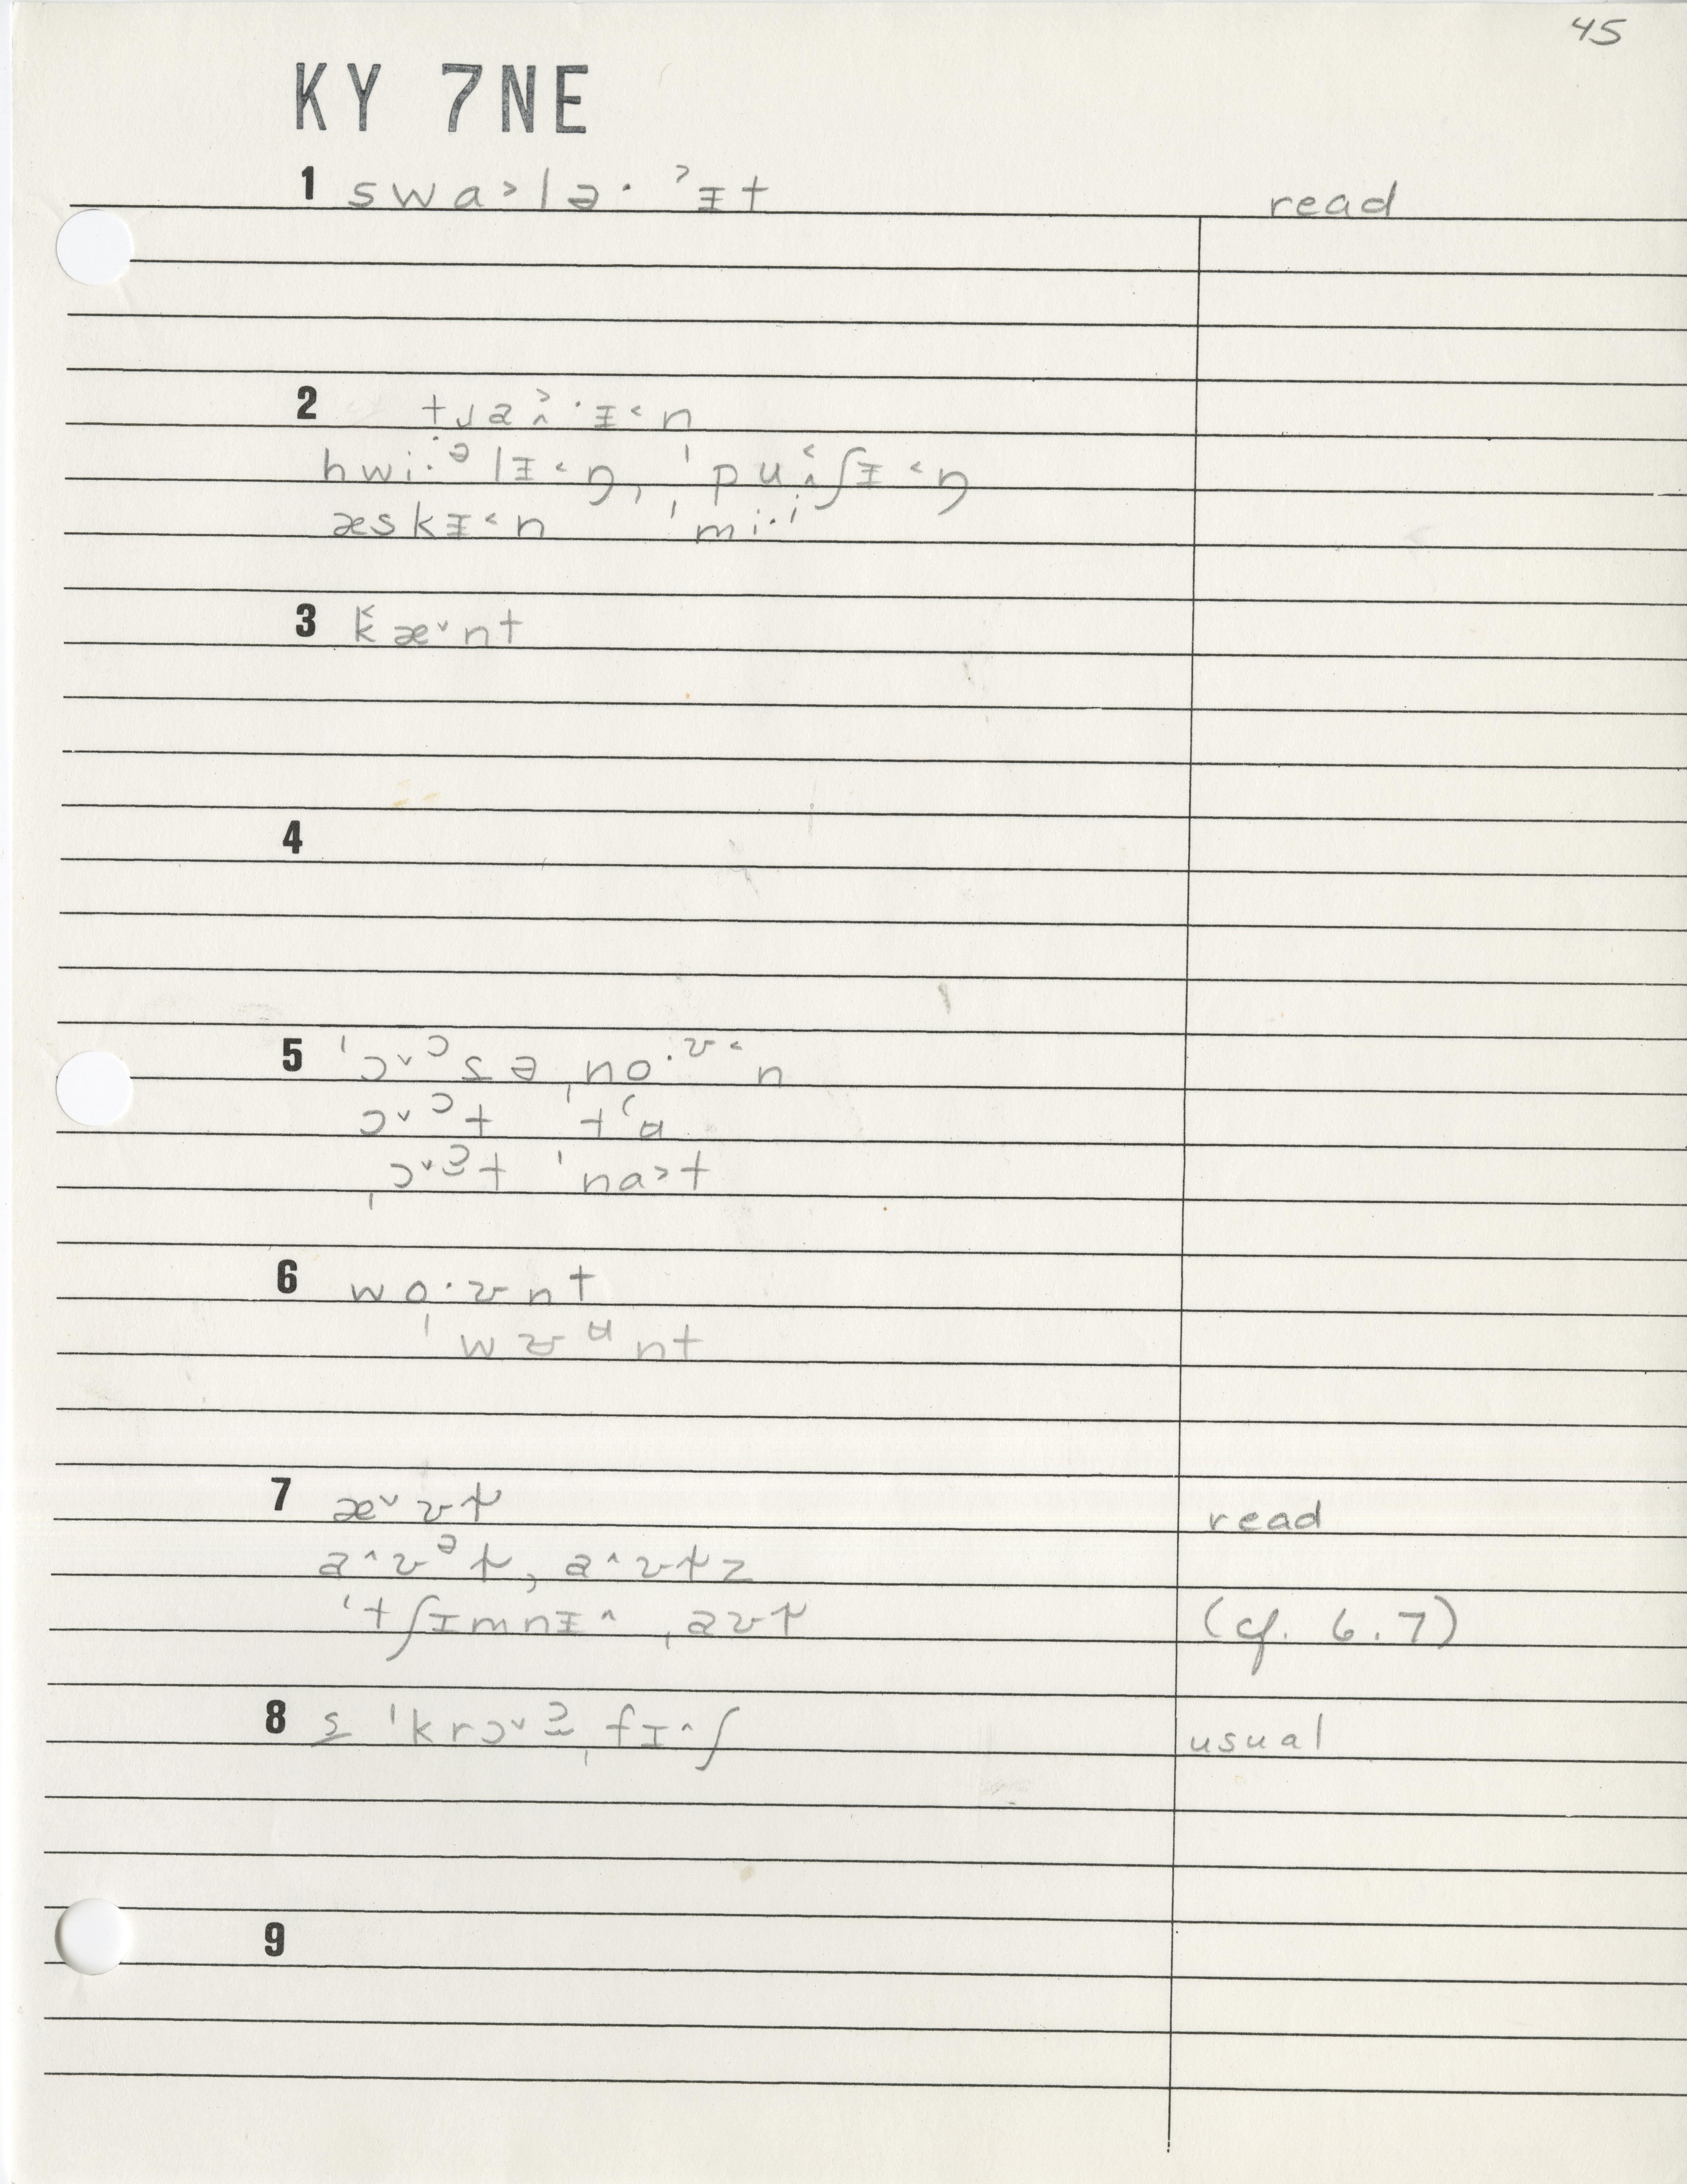 45
KY 7NE
1 swa˃lə· ˀɪt read
2 tɹa·ɪ˂n
hwi·ᵊlɪ˂ŋ, ˈpuʃɪ˂ŋ
æskɪ˂n ˈmi·ⁱ
3 kæ˅nt
4
5 ˈɔ˅ᵓsəˌno·ʊ˂n
ɔ˅ᵓt
ˌɔ˅t ˈna˃t
6 wo·ʊnt
7 æ˅ʊɚ read
a˄ʊᵊɚ, a˄ʊɚz
ˈtʃɪmnɪ˄ ˌaʊɚ (cf. 6.7)
8 s ˈkrɔ˅ˌfɪ˄ʃ usual
9